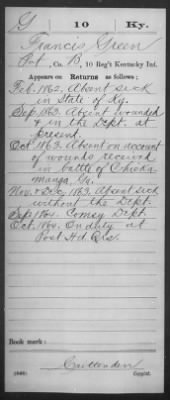 G 10 Ky.
Francis Green
Pvt, Co. B, 10 Reg't Kentucky Inf.
Appears on Returns as follows:
Feb. 1862. Absent sick
in State of Ky.
Sep. 1863. Absent wounded
& in the Dept. at
present.
Oct. 1863. Absent on account
of wounds received
in battle of Chicka-
mauga, Ga.
Nov. & Dec. 1863. Absent sick
without the Dept.
Sep 1864. Comsy Dept.
Oct. 1864. On duty at
Post Hd. Qrs.
Book mark:
Crittenden
(546) Copyist.